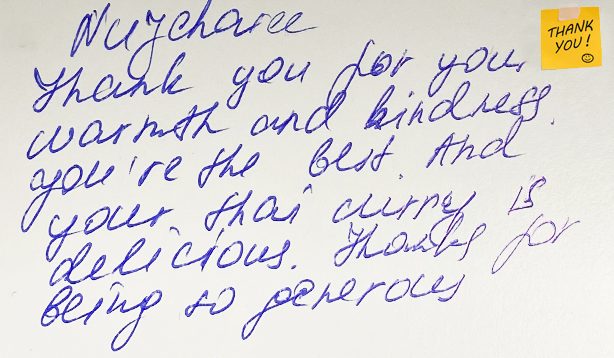 Nuycharee
Thank you for your
warmth and kindness.
you're the best. And
your thai curry is
delicious. Thanks for
being so generous
THANK
YOU!